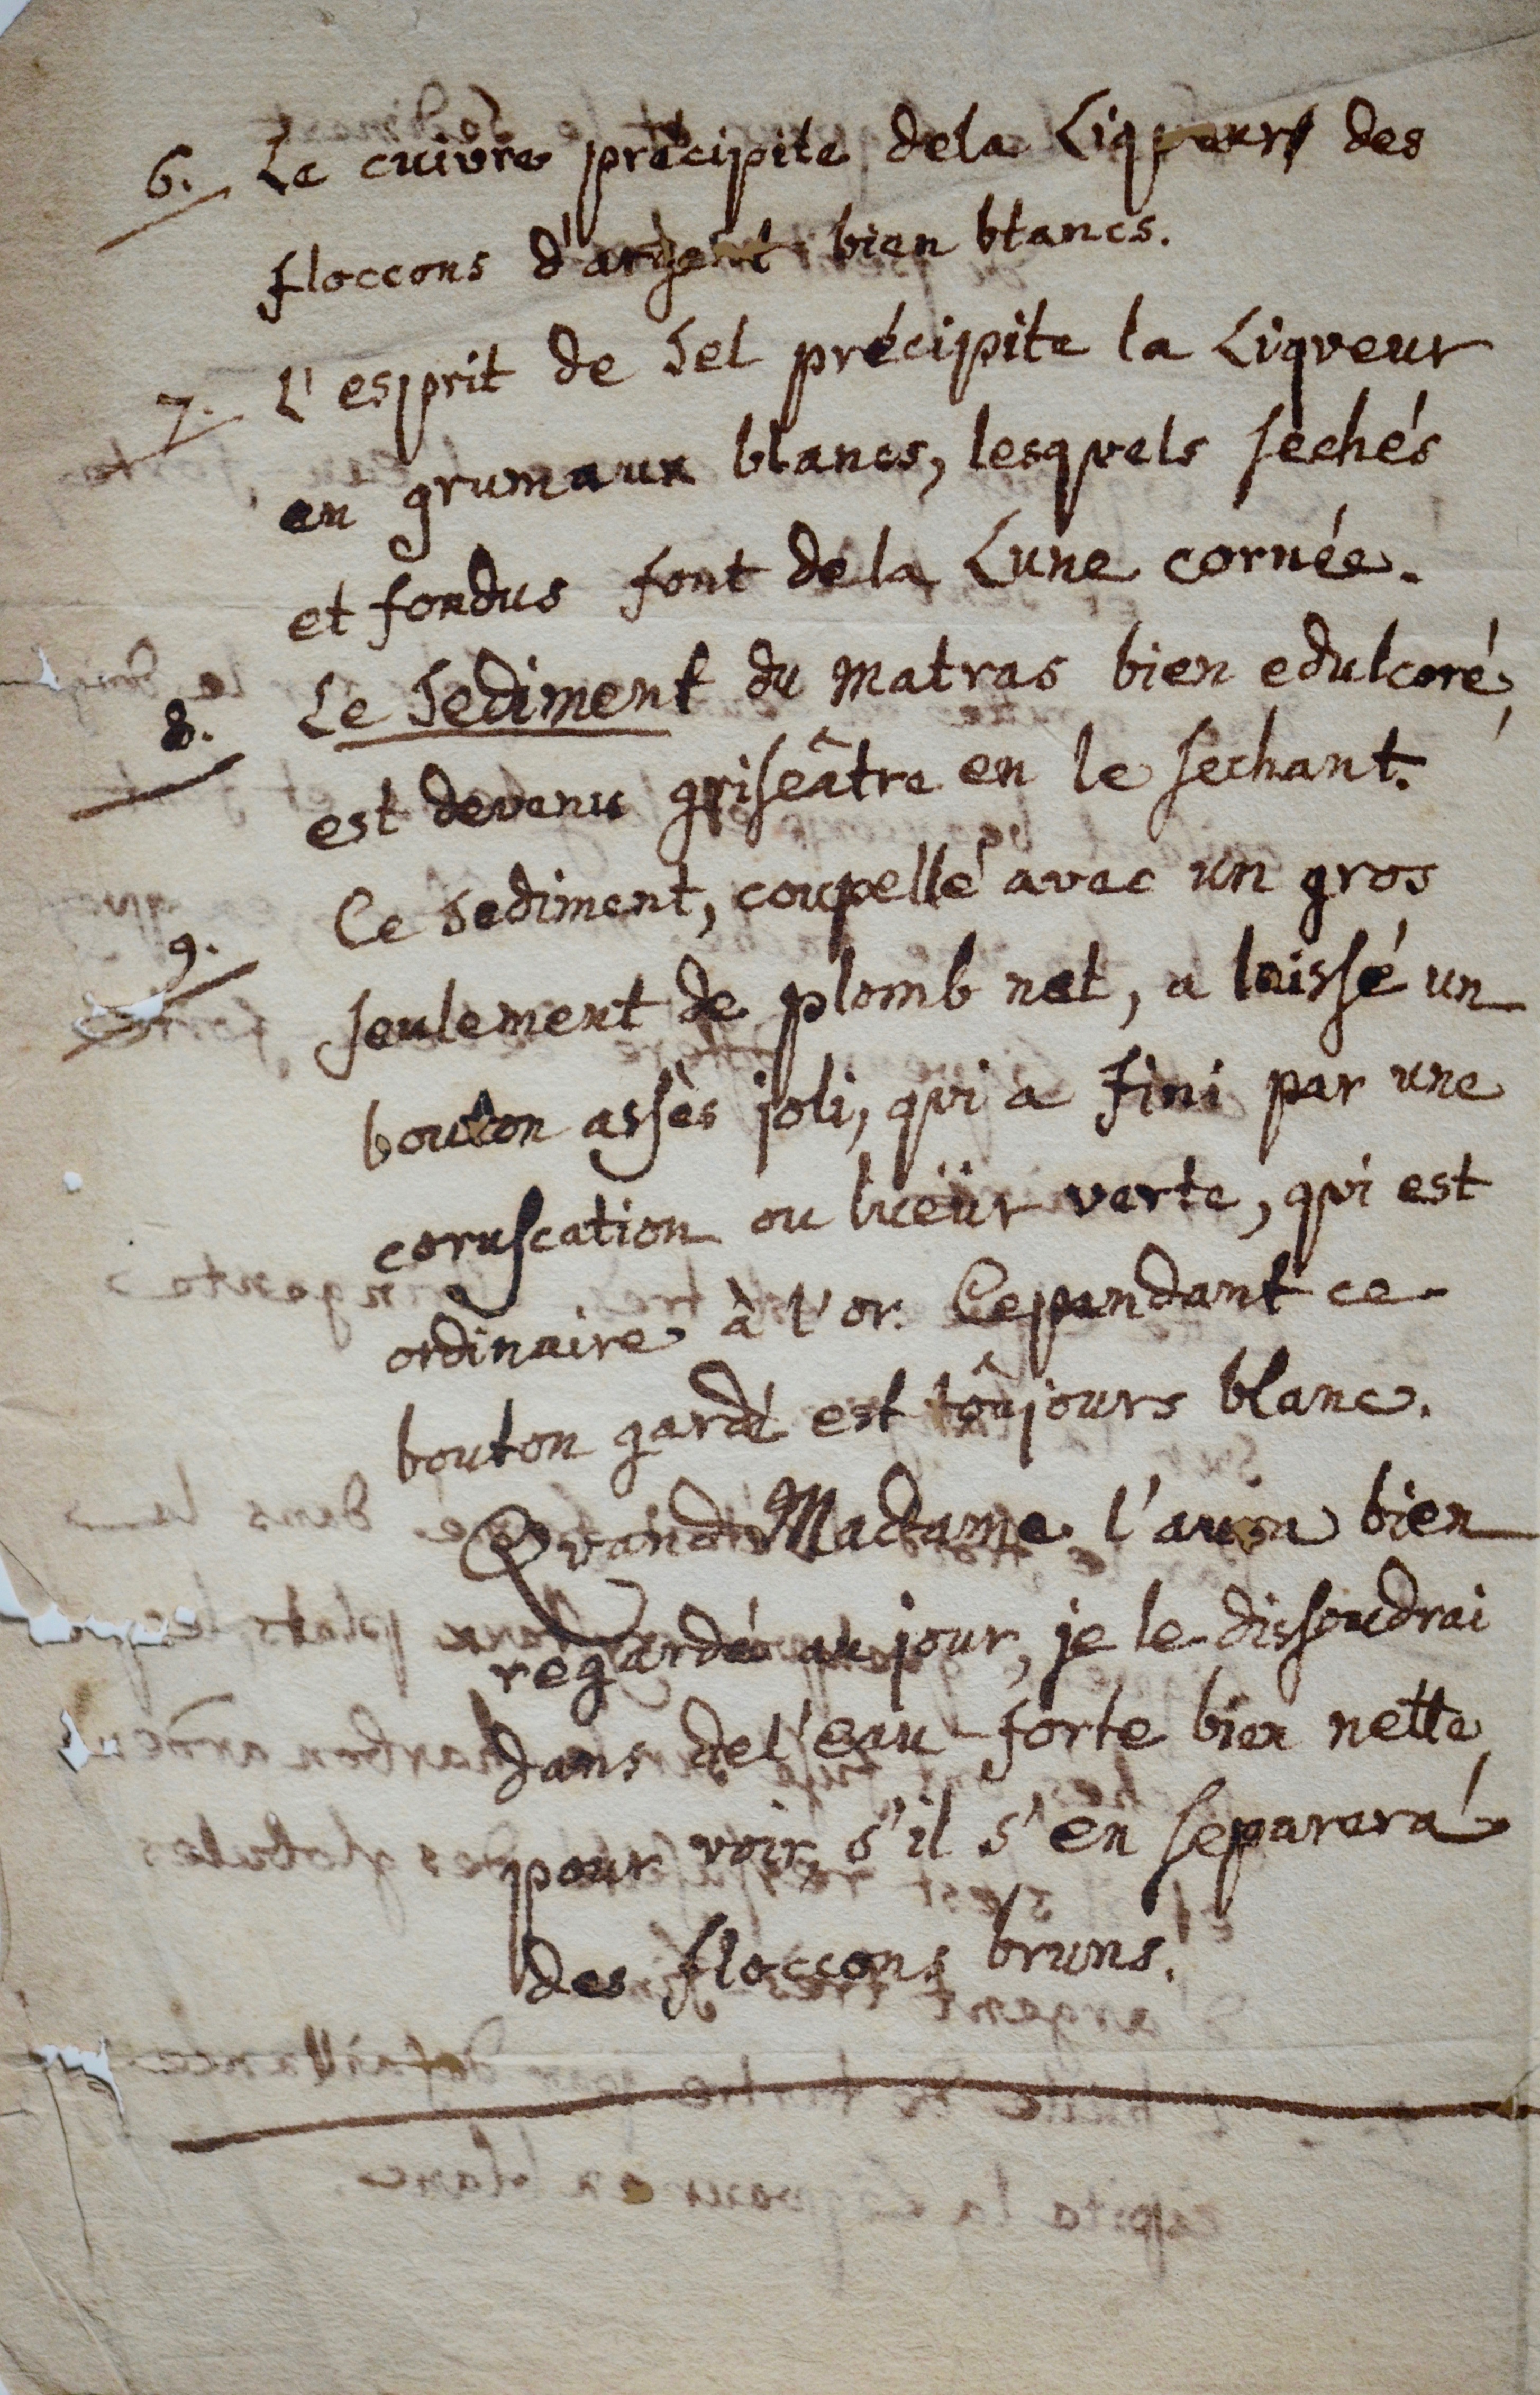 6. Le cuivre précipite dela Liqueur des
floccons d'argent bien blancs.
7. L'esprit de Sel précipite la Liqveur
en grumaux blancs, lesqvels sechés
et fondus font dela Lune cornée.
8. Le Sediment du Matras bien edulcoré,
est devenu griseâtre en le sechant.
9. Ce Sediment, coupellé avec un gros
seulement de plomb net, a laissé un
bouton assès joli, qvi a fini par une
coruscation ou lueür verte, qvi est
ordinaire à l'or. Cependant ce
bouton gardé est toûjours blanc.
Qvand Madame l'aura bien
regardé au jour, je le dissoudrai
dans del'eau-forte bien nette,
pour voir, s'il s'en separera
des floccons bruns.